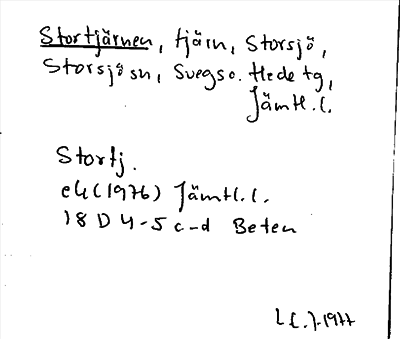 Stortjärnen, tjärn, Storsjö,
Storsjö sn, Svegs o. Hede tg,
Jämtl. l.
Stortj.
ek (1976) Jämtl. l.
18 D 4-5 c-d Beten
1977